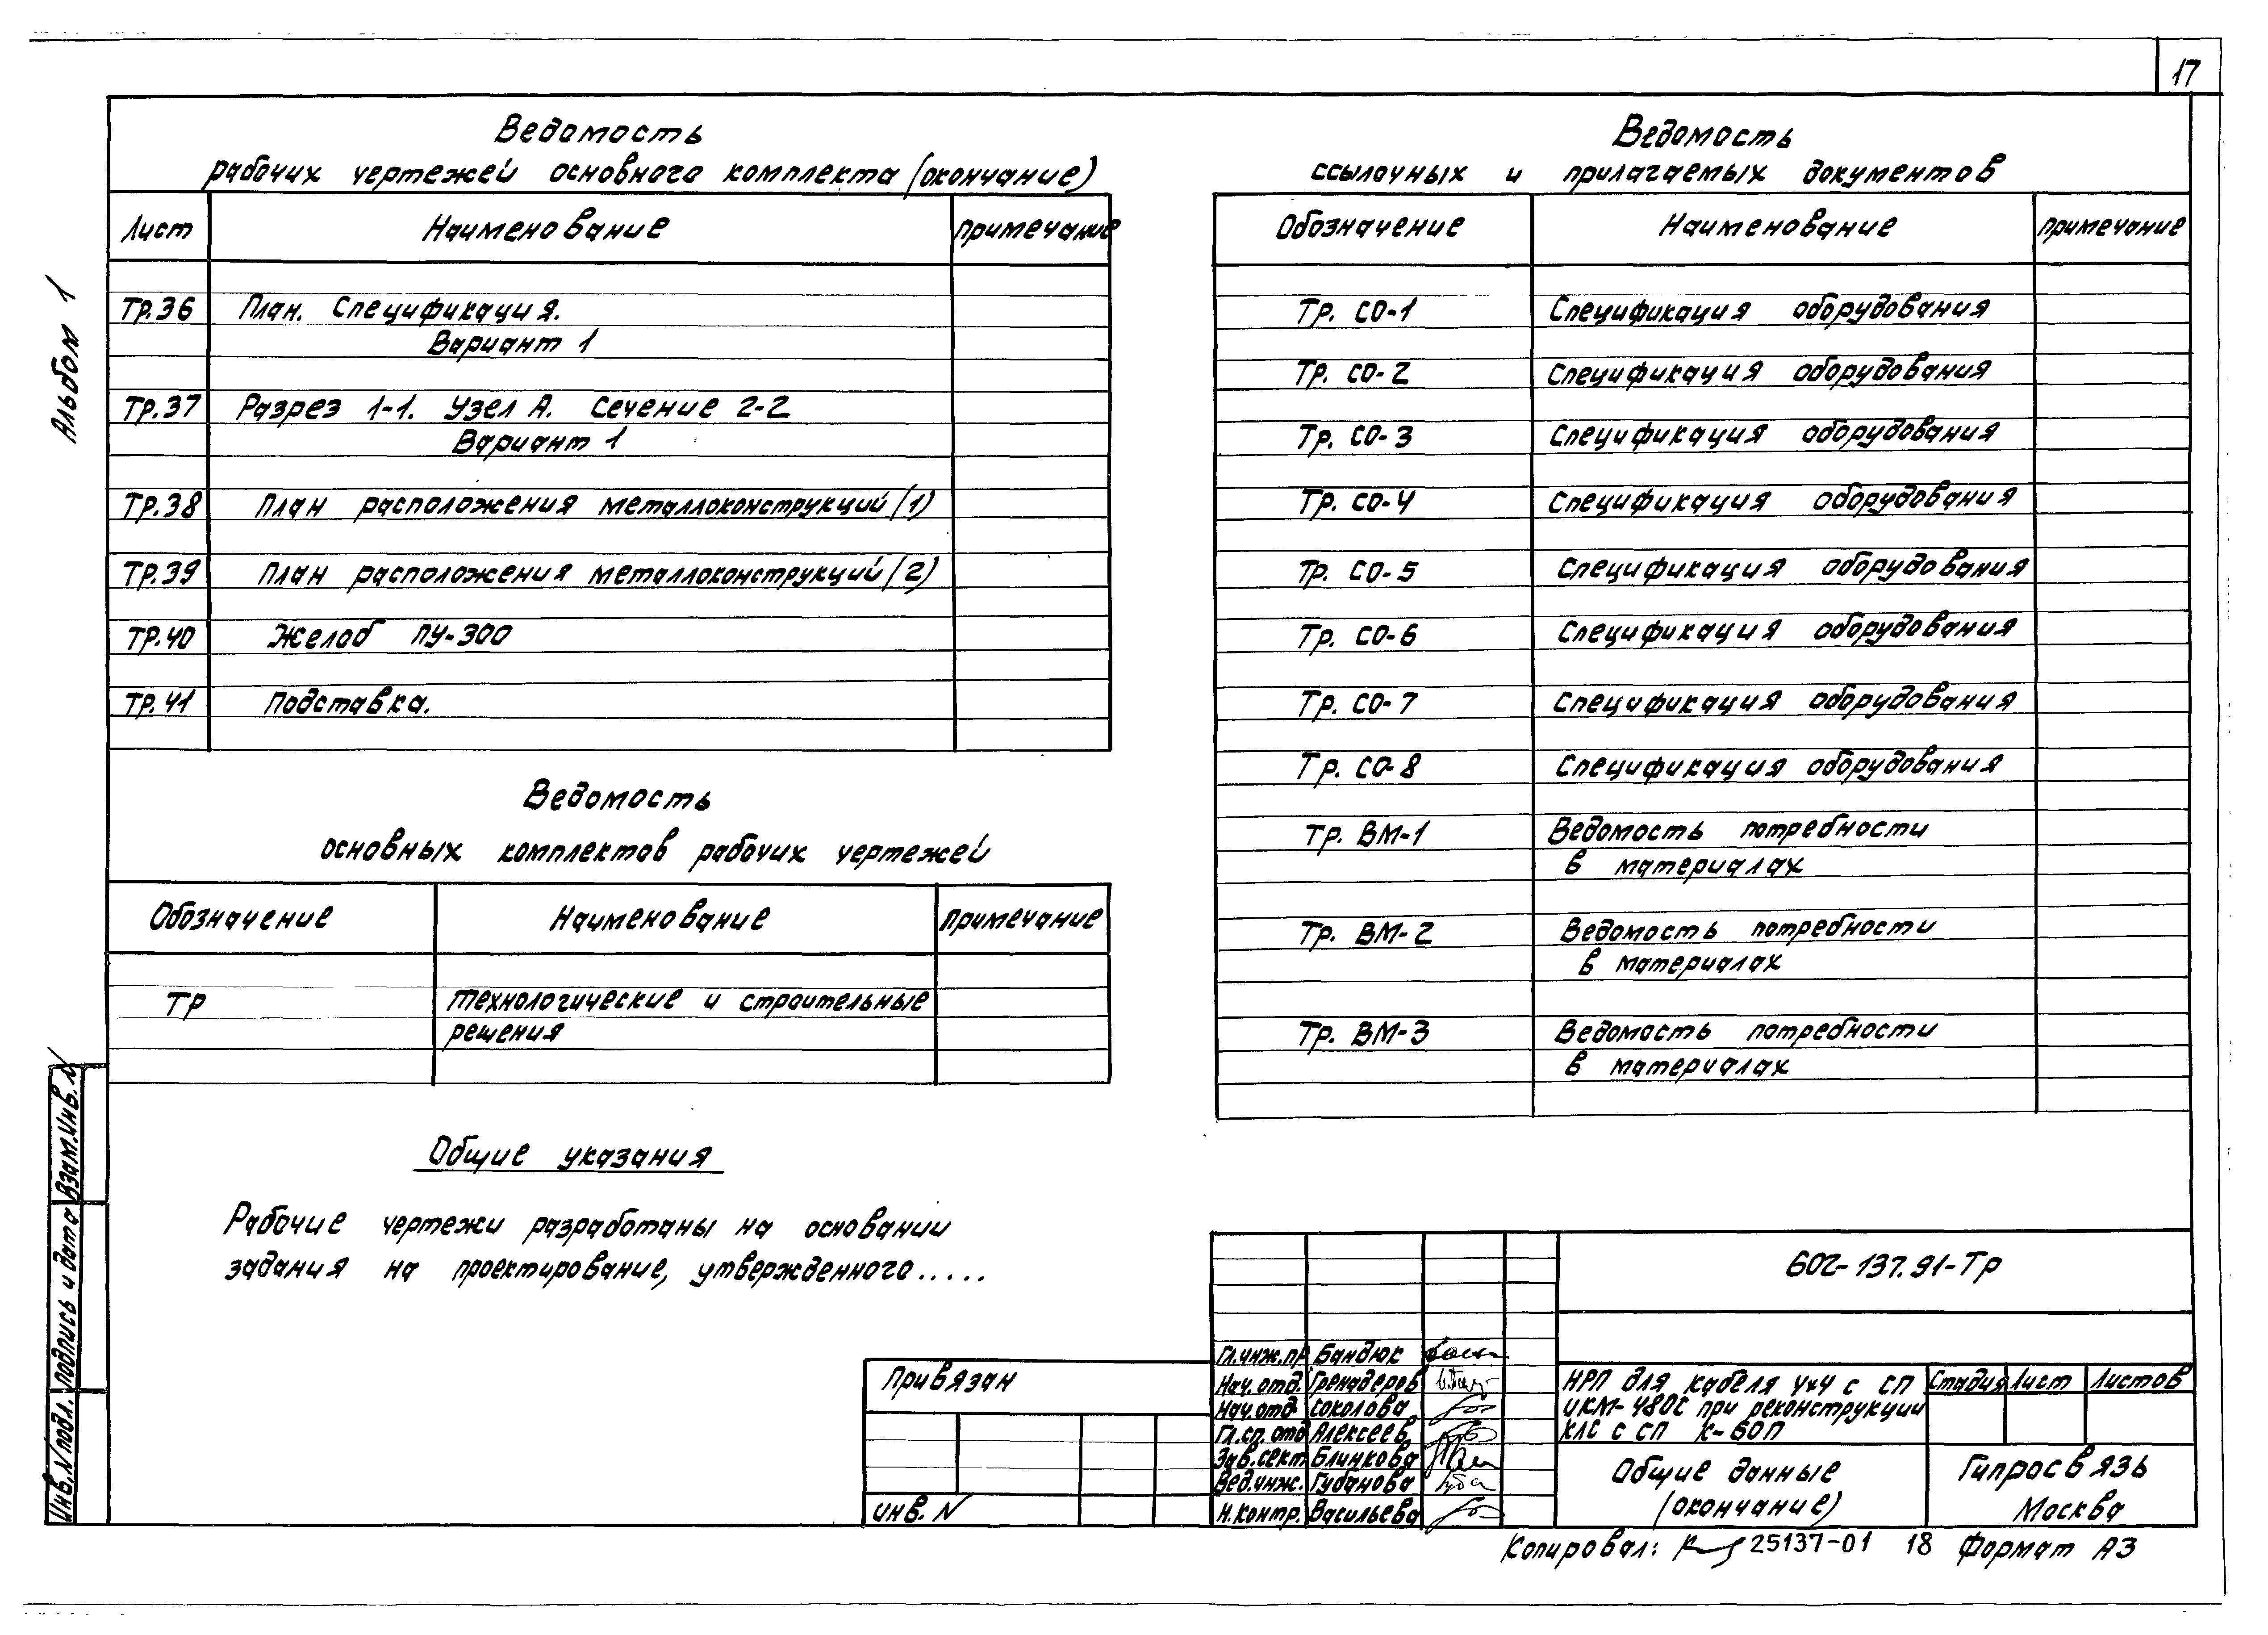 17
Альбом 1
Ведомость
рабочих чертежей основного комплекта (окончание)
Лист Наименование Примечание
Тр.36 План. Спецификация.
Вариант 1
Тр.37 Разрез 1-1. Узел А. Сечение 2-2
Вариант 1
Тр.38 План расположения металлоконструкций (1)
Тр.39 План расположения металлоконструкций (2)
Тр.40 Желоб ПУ-300
Тр.41 Подставка.
Ведомость
основных комплектов рабочих чертежей
Обозначение Наименование Примечание
ТР Технологические и строительные
решения
Общие указания
Рабочие чертежи разработаны на основании
задания на проектирование, утвержденного.....
Ведомость
ссылочных и прилагаемых документов
Обозначение Наименование Примечание
Тр. СО-1 Спецификация оборудования
Тр. СО-2 Спецификация оборудования
Тр. СО-3 Спецификация оборудования
Тр. СО-4 Спецификация оборудования
Тр. СО-5 Спецификация оборудования
Тр. СО-6 Спецификация оборудования
Тр. СО-7 Спецификация оборудования
Тр. СО-8 Спецификация оборудования
Тр. ВМ-1 Ведомость потребности
в материалах
Тр. ВМ-2 Ведомость потребности
в материалах
Тр. ВМ-3 Ведомость потребности
в материалах
Взам.инв.N
Подпись и дата
Инв.N подл.
Привязан
Инв. N
602-137.91-Тр
Гл.инж.пр Бандюк
Нач.отд. Гренадеров
Нач.отд. Соколова
Гл.сп.отд Алексеев
Зав.сект. Блинкова
Вед.инж. Губанова
Н.контр. Васильева
НРП для кабеля 4х4 с СП
ИКМ-480С при реконструкции
КЛС с СП К-60П
Стадия Лист Листов
Общие данные
(окончание)
Гипросвязь
Москва
Копировал: 25137-01 18 Формат А3